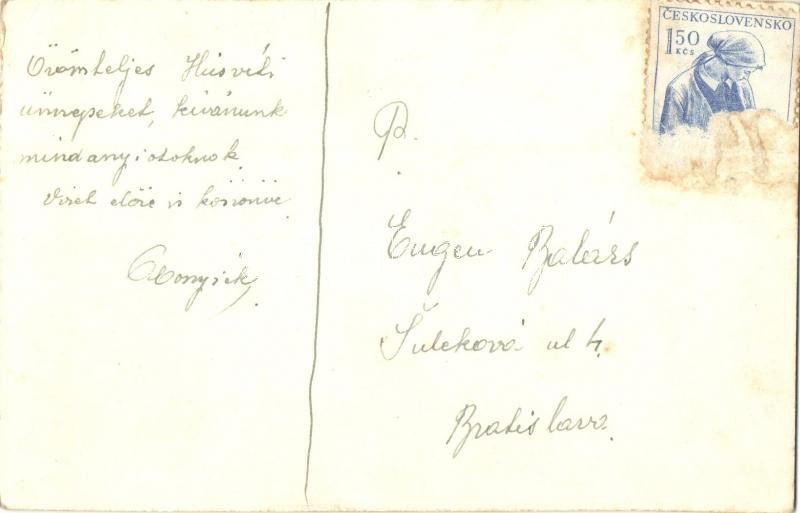 Örömteljes Húsvéti
ünnepeket, kívánunk
mindanyiotoknok.
Vizet előre is köszönve
Abonyiék
ČESKOSLOVENSKO
1,50
KČS
P.
Eugen Balázs
Šuleková ul 4.
Bratislava.